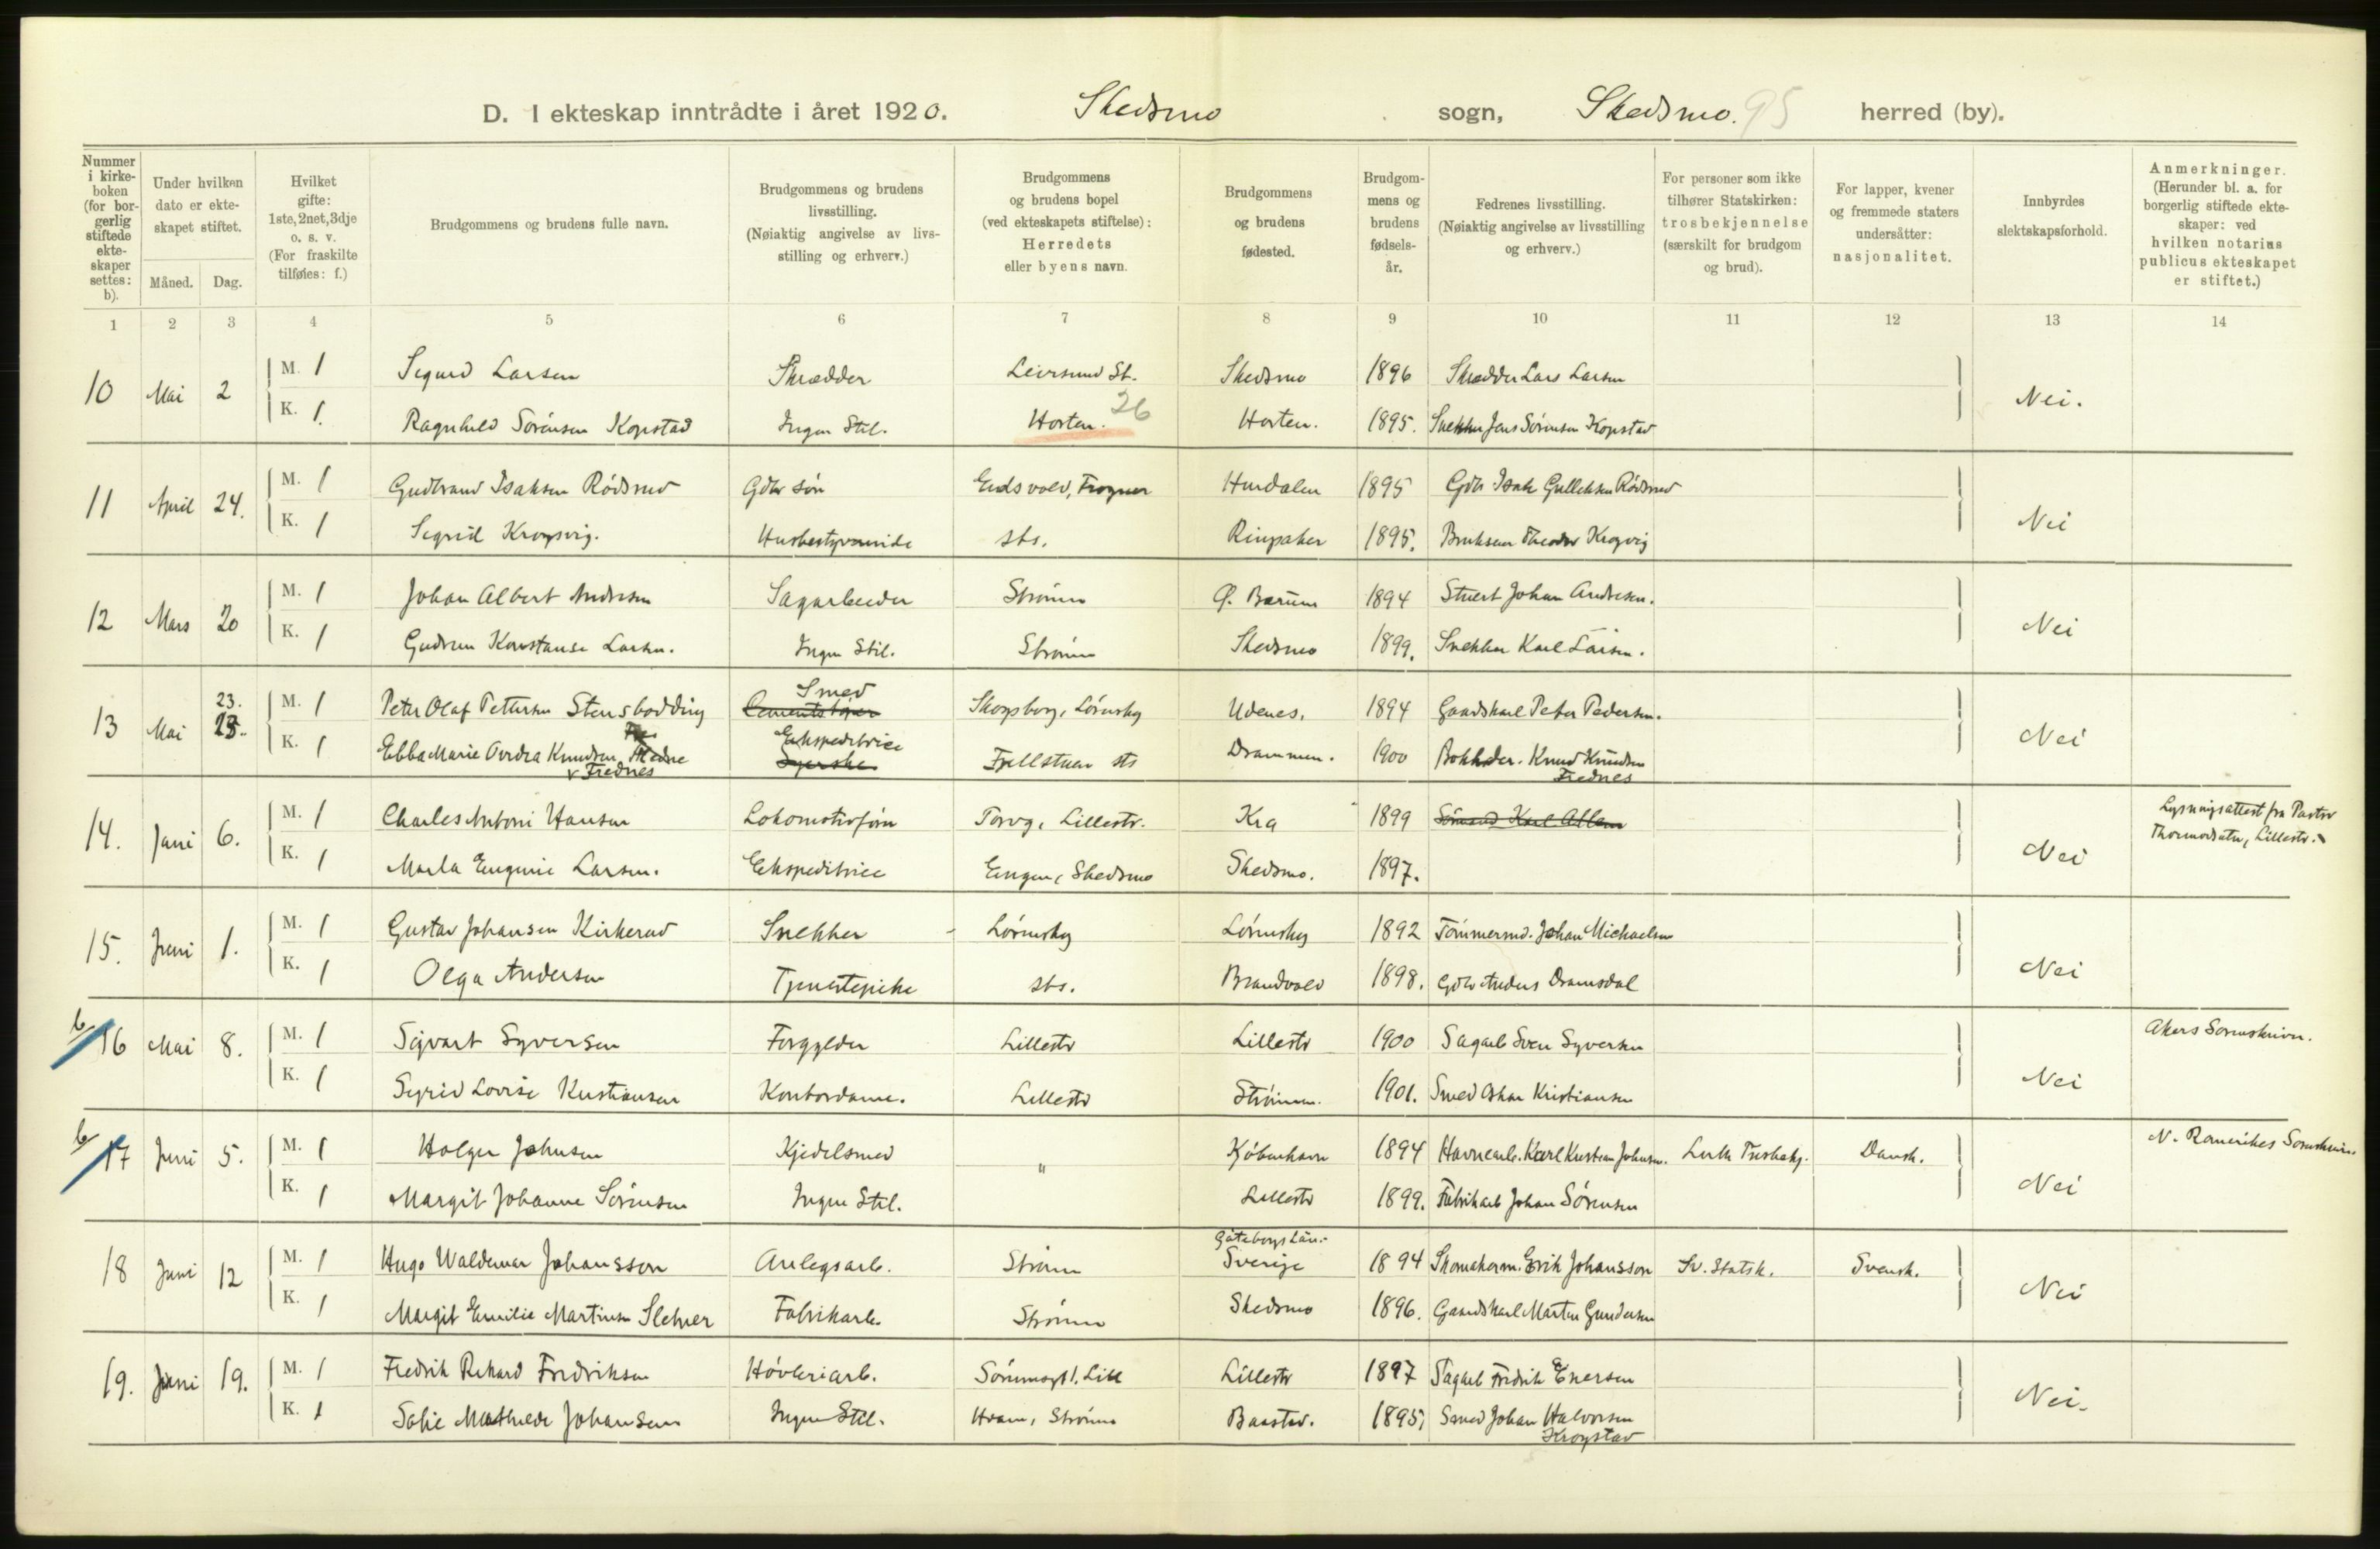 D. I ekteskap inntrådte i året 1920. Skedsmo sogn, Skedsmo. 95 herred (by).
Nummer i kirkeboken (for borgerlig stiftede ekteskaper settes: b).
Under hvilken dato er ekteskapet stiftet.
Måned. Dag.
Hvilket gifte: 1ste, 2net, 3dje o. s. v. (For fraskilte tilføies: f.)
Brudgommens og brudens fulle navn.
Brudgommens og brudens livsstilling. (Nøiaktig angivelse av livsstilling og erhverv.)
Brudgommens og brudens bopel (ved ekteskapets stiftelse): Herredets eller byens navn.
Brudgommens og brudens fødested.
Brudgommens og brudens fødselsår.
Fedrenes livsstilling. (Nøiaktig angivelse av livsstilling og erhverv.)
For personer som ikke tilhører Statskirken: trosbekjennelse (særskilt for brudgom og brud).
For lapper, kvener og fremmede staters undersåtter: nasjonalitet.
Innbyrdes slektskapsforhold.
Anmerkninger. (Herunder bl. a. for borgerlig stiftede ekteskaper: ved hvilken notarius publicus ekteskapet er stiftet.)
1 2 3 4 5 6 7 8 9 10 11 12 13 14
10 Mai 2 M. 1 Sigurd Larsen Skrædder Leirsund St. Skedsmo 1896 Skrædder Lars Larsen Nei.
K. 1. Ragnhild Sørensen Kopstad Ingen Stil. Horten. 26 Horten. 1895. Snekker Jens Sørensen Kopstad
11 April 24. M. 1 Gudbrand Isaksen Rødsrud Gdbr søn Eidsvold, Frogner Hurdalen 1895 Gdb Isak Gulleksen Rødsrud Nei
K. 1 Sigrid Krogsvig. Husbestyrerinde sts. Ringsaker 1895. Brukseier Theodor Krogvig
12 Mars 20 M. 1 Johan Albert Andresen Sagarbeider Strømm Ø. Bærum 1894 Stuert Johan Andresen. Nei
K. 1 Gudrun Konstanse Larsen. Ingen Stil. Strømm Skedsmo 1899. Snekker Karl Larsen.
13 Mai 23. M. 1 Peter Olaf Pettersen Stensbødding Smed Cementstøper Skogsborg, Lørenskog Udenes. 1894 Gaardskarl Peter Pedersen. Nei
K. 1 Ebba Marie Ovidia Knudsen Ekspeditrice Syerske Fjellstuen sts Drammen. 1900 Bokholder. Knud Knudsen
v Frednes Frednes
14. Juni 6. M. 1 Charles Antoni Hansen Lokomotivfører Torvg, Lillestr. Kra 1899 Nei Lysningsattest fra Pastor
K. 1 Marla Eugenie Larsen. Ekspeditrice Engen, Skedsmo Skedsmo. 1897. Thormodsæter, Lillestr.
15. Juni 1. M. 1 Gustav Johansen Kirkerud Snekker Lørenskog Lørenskog 1892 Tømmermd. Johan Michaelsen Nei
K. 1 Olga Andersen Tjenestepike sts. Brandvold 1898. Gdbr Anders Dramsdal
b/ 16 Mai 8. M. 1 Sigvart Syversen Forgylder Lillestr Lillestr 1900 Sagarb Sven Syversen Nei Akers Sorenskriver.
K. 1 Sigrid Lovise Kristiansen Kontordame. Lillestr Strømmen. 1901. Smed Oskar Kristiansen
b/ 17 Juni 5. M. 1 Holger Johnsen Kjedelsmed " Kjøbenhavn 1894 Havnearb. Karl Kristian Johnsen. Luth Frikirk. Dansk. Nei N. Romerikes Sorenskriver
K. 1 Margit Johanne Sørensen Ingen Stil. Lillestr 1899. Fabrikarb Johan Sørensen
18 Juni 12 M. 1 Hugo Waldemar Johansson Anlegsarb. Strømm Gøteborgs Län. Sverige 1894 Skomakerm. Erik Johansson Sv. Statsk. Svensk. Nei
K. 1 Margit Emilie Martinsen Sletner Fabrikarb. Strømm Skedsmo 1896. Gaardskarl Martin Gundersen
19. Juni 19. M. 1 Fredrik Rikard Fredriksen Høvleriarb. Sørumsgt 1. Lill Lillestr 1897 Sagarb Fredrik Enersen Nei.
K. 1 Sofie Mathilde Johansen Ingen Stil. Hvam, Strømm Baastad. 1895, Smed Johan Halvorsen
Krogstad